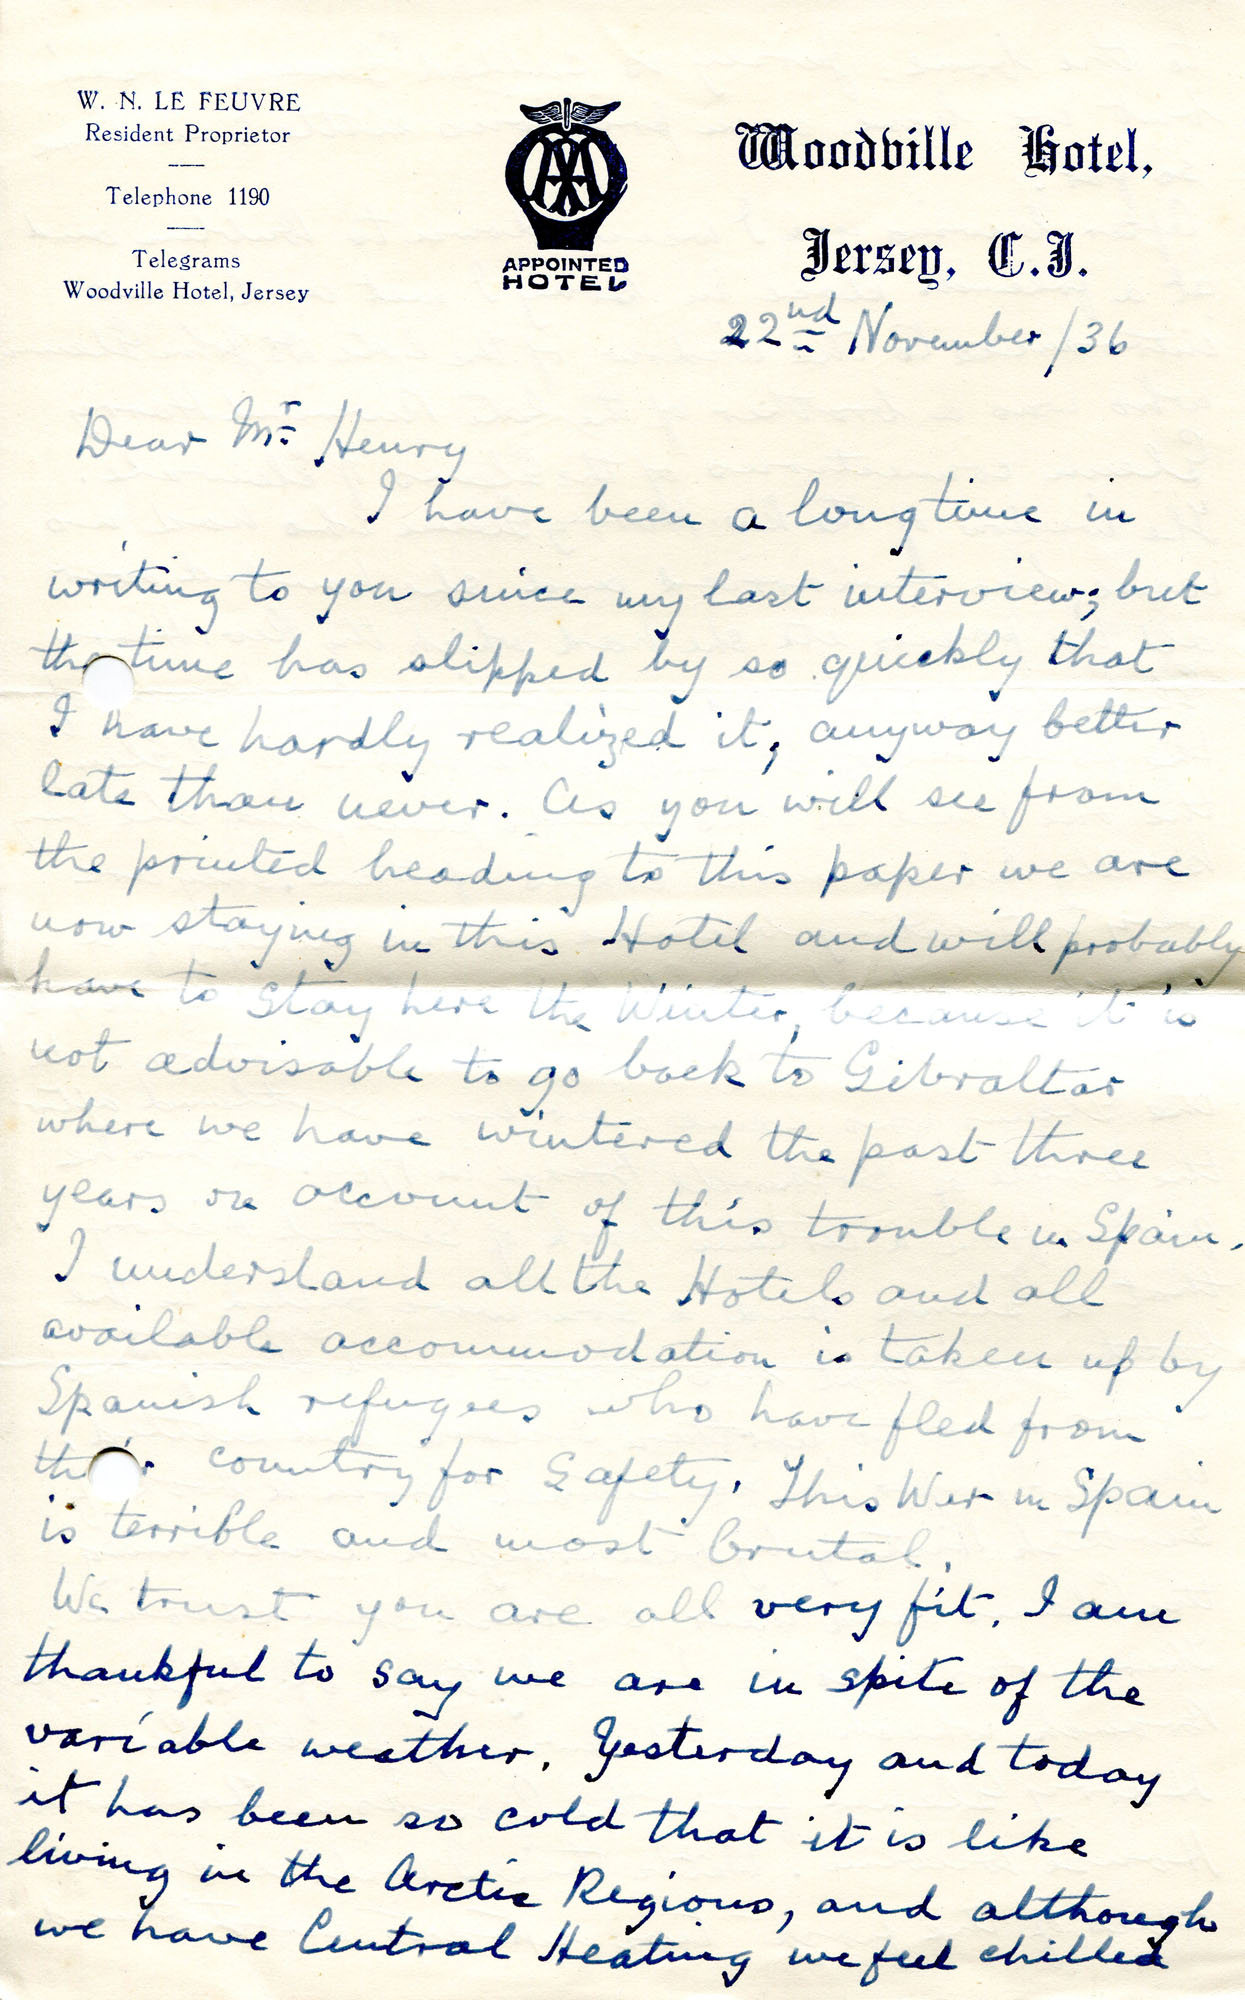 W. N. LE FEUVRE
Resident Proprietor
Telephone 1190
Telegrams
Woodville Hotel, Jersey
AA
APPOINTED
HOTEL
Woodville Hotel,
Jersey, C.I.
22nd November /36
Dear Mr Henry
I have been a long time in
writing to you since my last interview; but
the time has slipped by so quickly that
I have hardly realized it; anyway better
late than never. As you will see from
the printed heading to this paper we are
now staying in this Hotel and will probably
have to stay here the Winter, because it is
not advisable to go back to Gibraltar
where we have wintered the past three
years on account of this trouble in Spain.
I understand all the Hotels and all
available accommodation is taken up by
Spanish refugees who have fled from
their country for Safety. This War in Spain
is terrible and most brutal.
We trust you are all very fit. I am
thankful to say we are in spite of the
variable weather. Yesterday and today
it has been so cold that it is like
living in the Arctic Regions, and although
we have Central Heating we feel chilled